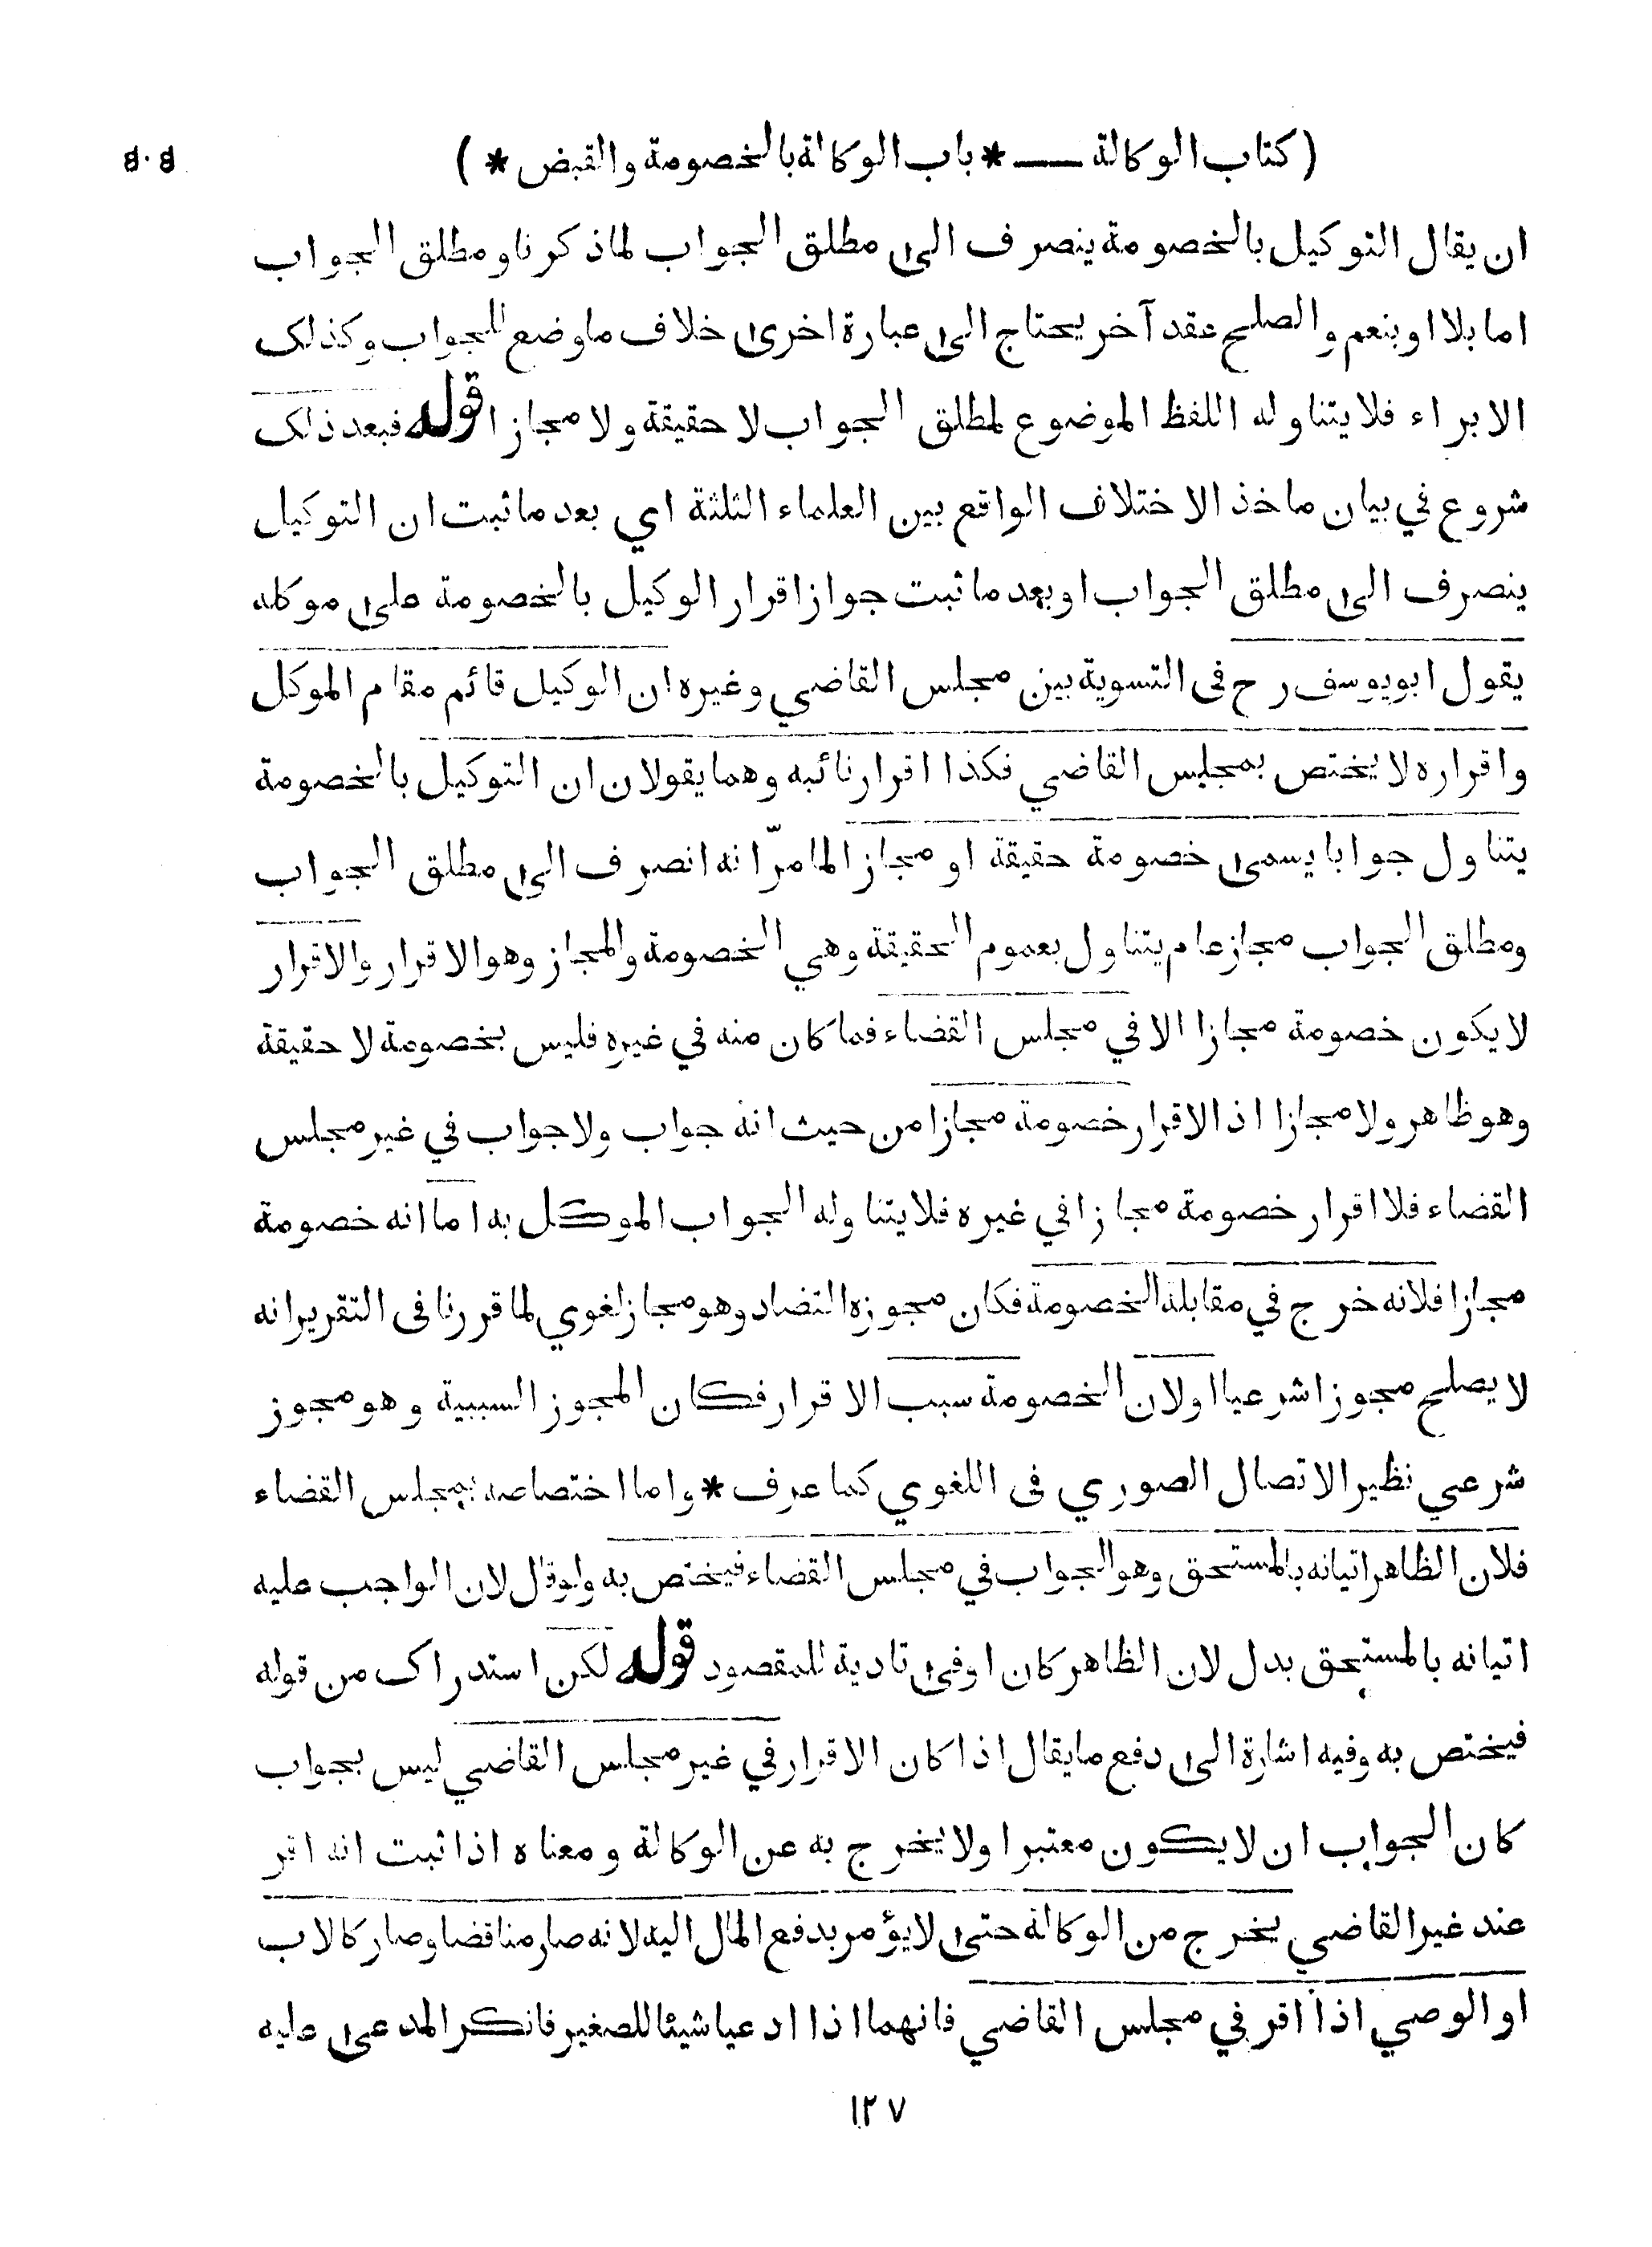 ( كتاب الوكالة — * باب الوكالة بالخصومة والقبض * ) ۵۰۵
ان يقال التوكيل بالخصومة ينصرف الى مطلق الجواب لماذكرنا ومطلق الجواب
اما بلا او بنعم والصلح عقد آخر يحتاج الى عبارة اخرى خلاف ما وضع للجواب وكذلك
الابراء فلا يتناوله اللفظ الموضوع لمطلق الجواب لا حقيقة ولا مجازا قوله فبعد ذلك
شروع في بيان ماخذ الاختلاف الواقع بين العلماء الثلثة اي بعد ما ثبت ان التوكيل
ينصرف الى مطلق الجواب او بعد ما ثبت جواز اقرار الوكيل بالخصومة على موكله
يقول ابويوسف رح فى التسوية بين مجلس القاضي وغيره ان الوكيل قائم مقام الموكل
واقراره لا يختص بمجلس القاضي فكذا اقرار نائبه وهما يقولان ان التوكيل بالخصومة
يتناول جوابا يسمى خصومة حقيقة او مجازا لما مرّ انه انصرف الى مطلق الجواب
ومطلق الجواب مجاز عام يتناول بعموم الحقيقة وهي الخصومة والمجاز وهو الاقرار والاقرار
لا يكون خصومة مجازا الا في مجلس القضاء فما كان منه في غيره فليس بخصومة لا حقيقة
وهو ظاهر ولا مجازا اذ الاقرار خصومة مجازا من حيث انه جواب ولا جواب في غير مجلس
القضاء فلا اقرار خصومة مجازا في غيره فلا يتناوله الجواب الموكل به اما انه خصومة
مجازا فلانه خرج في مقابلة الخصومة فكان مجوزه التضاد وهو مجاز لغوي لما قررنا فى التقرير انه
لا يصلح مجوزا شرعيا او لان الخصومة سبب الاقرار فكان المجوز السببية وهو مجوز
شرعي نظير الاتصال الصوري فى اللغوي كما عرف * واما اختصاصه بمجلس القضاء
فلان الظاهر اتيانه بالمستحق وهو الجواب في مجلس القضاء فيختص به ولو قال لان الواجب عليه
اتيانه بالمستحق بدل لان الظاهر كان اوفى تادية للمقصود قوله لكن استدراك من قوله
فيختص به وفيه اشارة الى دفع ما يقال اذا كان الاقرار في غير مجلس القاضي ليس بجواب
كان الجواب ان لا يكون معتبرا ولا يخرج به عن الوكالة ومعناه اذا ثبت انه اقر
عند غير القاضي يخرج من الوكالة حتى لا يؤمر بدفع المال اليه لانه صار مناقضا وصار كالاب
او الوصي اذا اقر في مجلس القاضي فانهما اذا ادعيا شيئا للصغير فانكر المدعى عليه
١٢٧